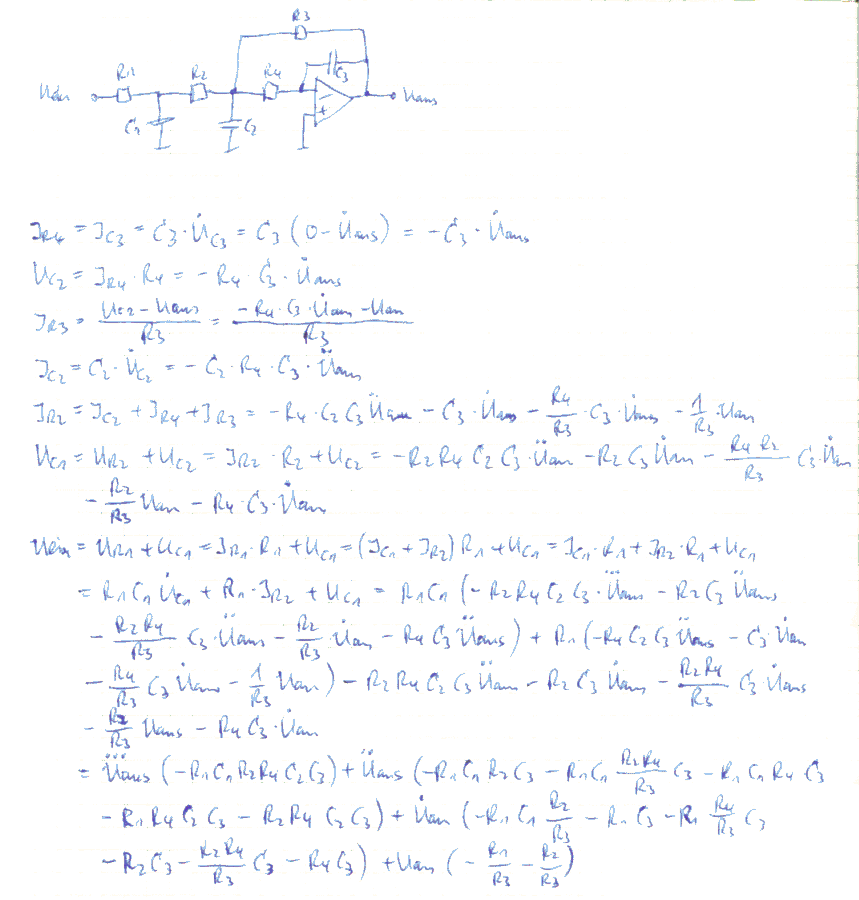 R3
R1 R2 R4 C3
Uein Uaus
C1 C2
I_R4 = I_C3 = C3·U̇_C3 = C3 (0 - U̇aus) = -C3·U̇aus
U_C2 = I_R4·R4 = -R4·C3·U̇aus
I_R3 = (U_C2 - Uaus)/R3 = (-R4·C3·U̇aus - Uaus)/R3
I_C2 = C2·U̇_C2 = -C2·R4·C3·Üaus
I_R2 = I_C2 + I_R4 + I_R3 = -R4·C2 C3 Üaus - C3·U̇aus - R4/R3·C3·U̇aus - 1/R3·Uaus
U_C1 = U_R2 + U_C2 = I_R2·R2 + U_C2 = -R2 R4 C2 C3·Üaus - R2 C3 U̇aus - (R4 R2)/R3 C3·U̇aus
- R2/R3 Uaus - R4·C3·U̇aus
Uein = U_R1 + U_C1 = I_R1·R1 + U_C1 = (I_C1 + I_R2) R1 + U_C1 = I_C1·R1 + I_R2·R1 + U_C1
= R1 C1 U̇_C1 + R1·I_R2 + U_C1 = R1 C1 (-R2 R4 C2 C3·U⃛aus - R2 C3 Üaus
- (R2 R4)/R3 C3·Üaus - R2/R3 U̇aus - R4 C3 Üaus) + R1 (-R4 C2 C3 Üaus - C3·U̇aus
- R4/R3 C3 U̇aus - 1/R3 Uaus) - R2 R4 C2 C3 Üaus - R2 C3 U̇aus - (R2 R4)/R3 C3·U̇aus
- R2/R3 Uaus - R4 C3·U̇aus
= U⃛aus (-R1 C1 R2 R4 C2 C3) + Üaus (-R1 C1 R2 C3 - R1 C1 (R2 R4)/R3 C3 - R1 C1 R4 C3
- R1 R4 C2 C3 - R2 R4 C2 C3) + U̇aus (-R1 C1 R2/R3 - R1 C3 - R1 R4/R3 C3
- R2 C3 - (R2 R4)/R3 C3 - R4 C3) + Uaus (- R1/R3 - R2/R3)